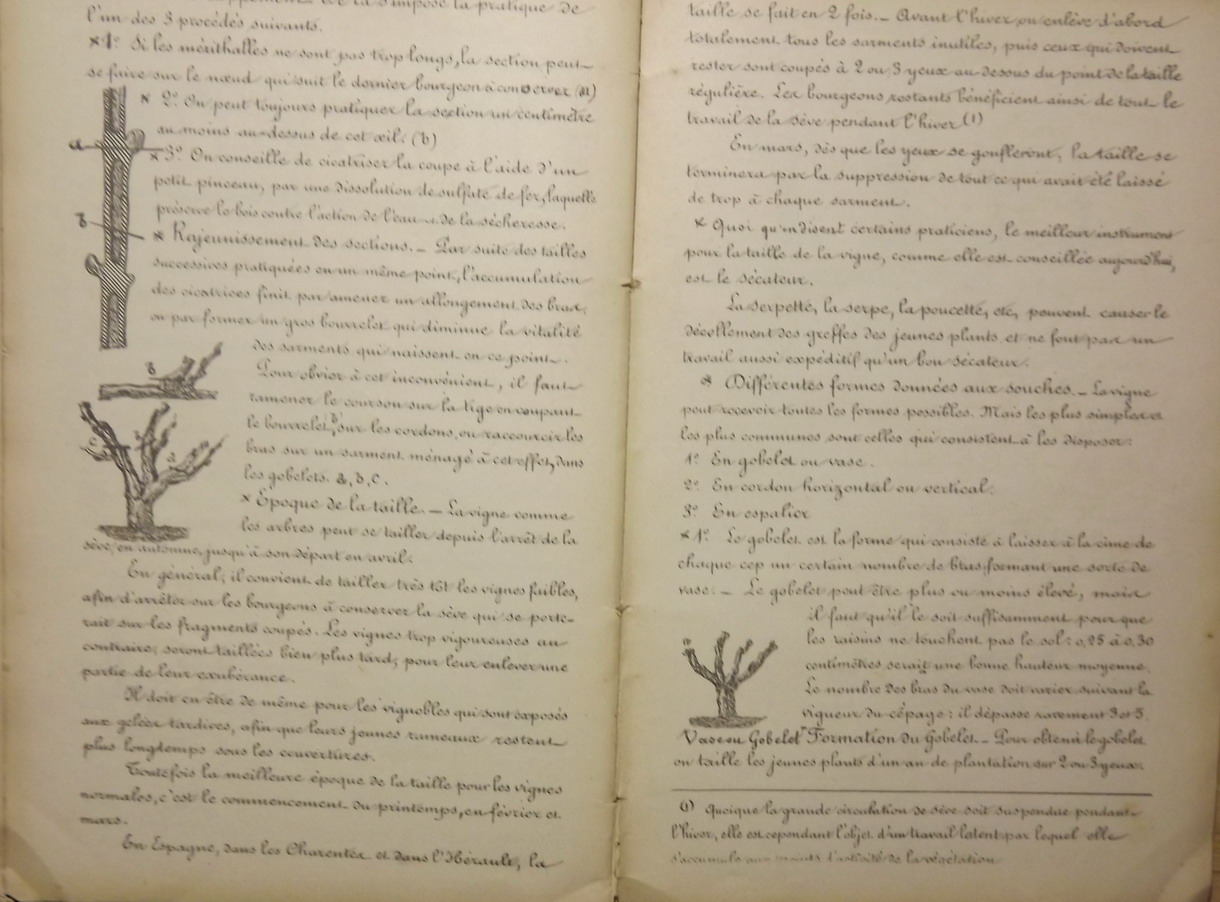 la pratique de
l'un des 3 procédés suivants.
* 1° Si les mérithalles ne sont pas trop longs, la section peut
se faire sur le nœud qui suit le dernier bourgeon à conserver (a)
* 2° On peut toujours pratiquer la section un centimètre
au moins au-dessus de cet œil: (b)
a
* 3° On conseille de cicatriser la coupe à l'aide d'un
petit pinceau, par une dissolution de sulfate de fer, laquelle
préserve le bois contre l'action de l'eau et de la sécheresse.
b
* Rajeunissement des sections. — Par suite des tailles
successives pratiquées en un même point, l'accumulation
des cicatrices finit par amener un allongement des bras,
ou par former un gros bourrelet qui diminue la vitalité
des sarments qui naissent en ce point.
b
Pour obvier à cet inconvénient, il faut
ramener le courson sur la tige en coupant
le bourrelet, b, sur les cordons, ou raccourcir les
bras sur un sarment ménagé à cet effet, dans
les gobelets. a, b, c.
c
a
* Epoque de la taille. — La vigne comme
les arbres peut se tailler depuis l'arrêt de la
sève, en automne, jusqu'à son départ en avril.
En général, il convient de tailler très tôt les vignes faibles,
afin d'arrêter sur les bourgeons à conserver la sève qui se porte-
rait sur les fragments coupés. Les vignes trop vigoureuses au
contraire, seront taillées bien plus tard, pour leur enlever une
partie de leur exubérance.
Il doit en être de même pour les vignobles qui sont exposés
aux gelées tardives, afin que leurs jeunes rameaux restent
plus longtemps sous les couvertures.
Toutefois la meilleure époque de la taille pour les vignes
normales, c'est le commencement du printemps, en février et
mars.
En Espagne, dans les Charentes et dans l'Hérault, la
taille se fait en 2 fois. — Avant l'hiver on enlève d'abord
totalement tous les sarments inutiles, puis ceux qui doivent
rester sont coupés à 2 ou 3 yeux au-dessus du point de la taille
régulière. Les bourgeons restants bénéficient ainsi de tout le
travail de la sève pendant l'hiver (1)
En mars, dès que les yeux se gonfleront, la taille se
terminera par la suppression de tout ce qui avait été laissé
de trop à chaque sarment.
* Quoi qu'en disent certains praticiens, le meilleur instrument
pour la taille de la vigne, comme elle est conseillée aujourd'hui,
est le sécateur.
La serpette, la serpe, la poucette, etc, peuvent causer le
décollement des greffes des jeunes plants et ne font pas un
travail aussi expéditif qu'un bon sécateur.
* Différentes formes données aux souches. — La vigne
peut recevoir toutes les formes possibles. Mais les plus simples et
les plus communes sont celles qui consistent à les disposer:
1° En gobelet ou vase.
2° En cordon horizontal ou vertical.
3° En espalier
* 1° Le gobelet est la forme qui consiste à laisser à la cime de
chaque cep un certain nombre de bras, formant une sorte de
vase. — Le gobelet peut être plus ou moins élevé, mais
il faut qu'il le soit suffisamment pour que
les raisins ne touchent pas le sol: 0,25 à 0,30
centimètres serait une bonne hauteur moyenne.
Le nombre des bras du vase doit varier suivant la
vigueur du cépage: il dépasse rarement 3 et 5.
Vase ou Gobelet
Formation du Gobelet. — Pour obtenir le gobelet
on taille les jeunes plants d'un an de plantation sur 2 ou 3 yeux.
(1) Quoique la grande circulation de sève soit suspendue pendant
l'hiver, elle est cependant l'objet d'un travail latent par lequel elle
s'accumule aux points de la végétation